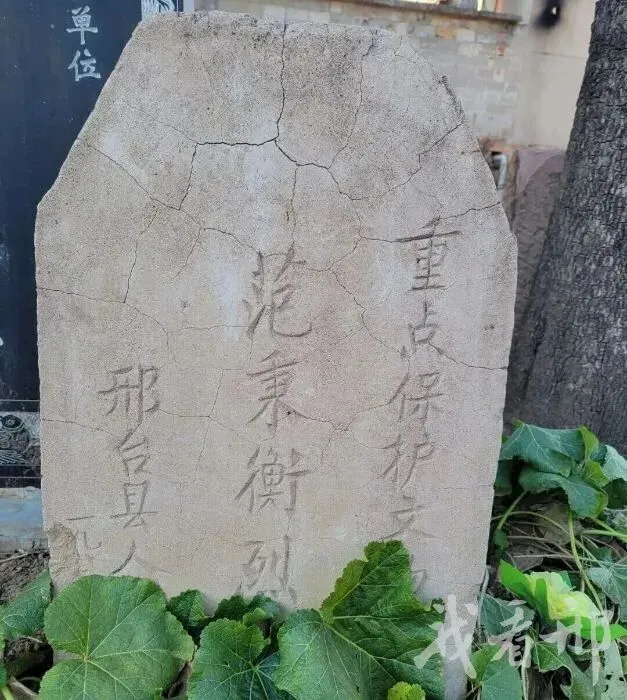 重点保护文
范秉衡烈
邢台县人
一九
单位
我看邢